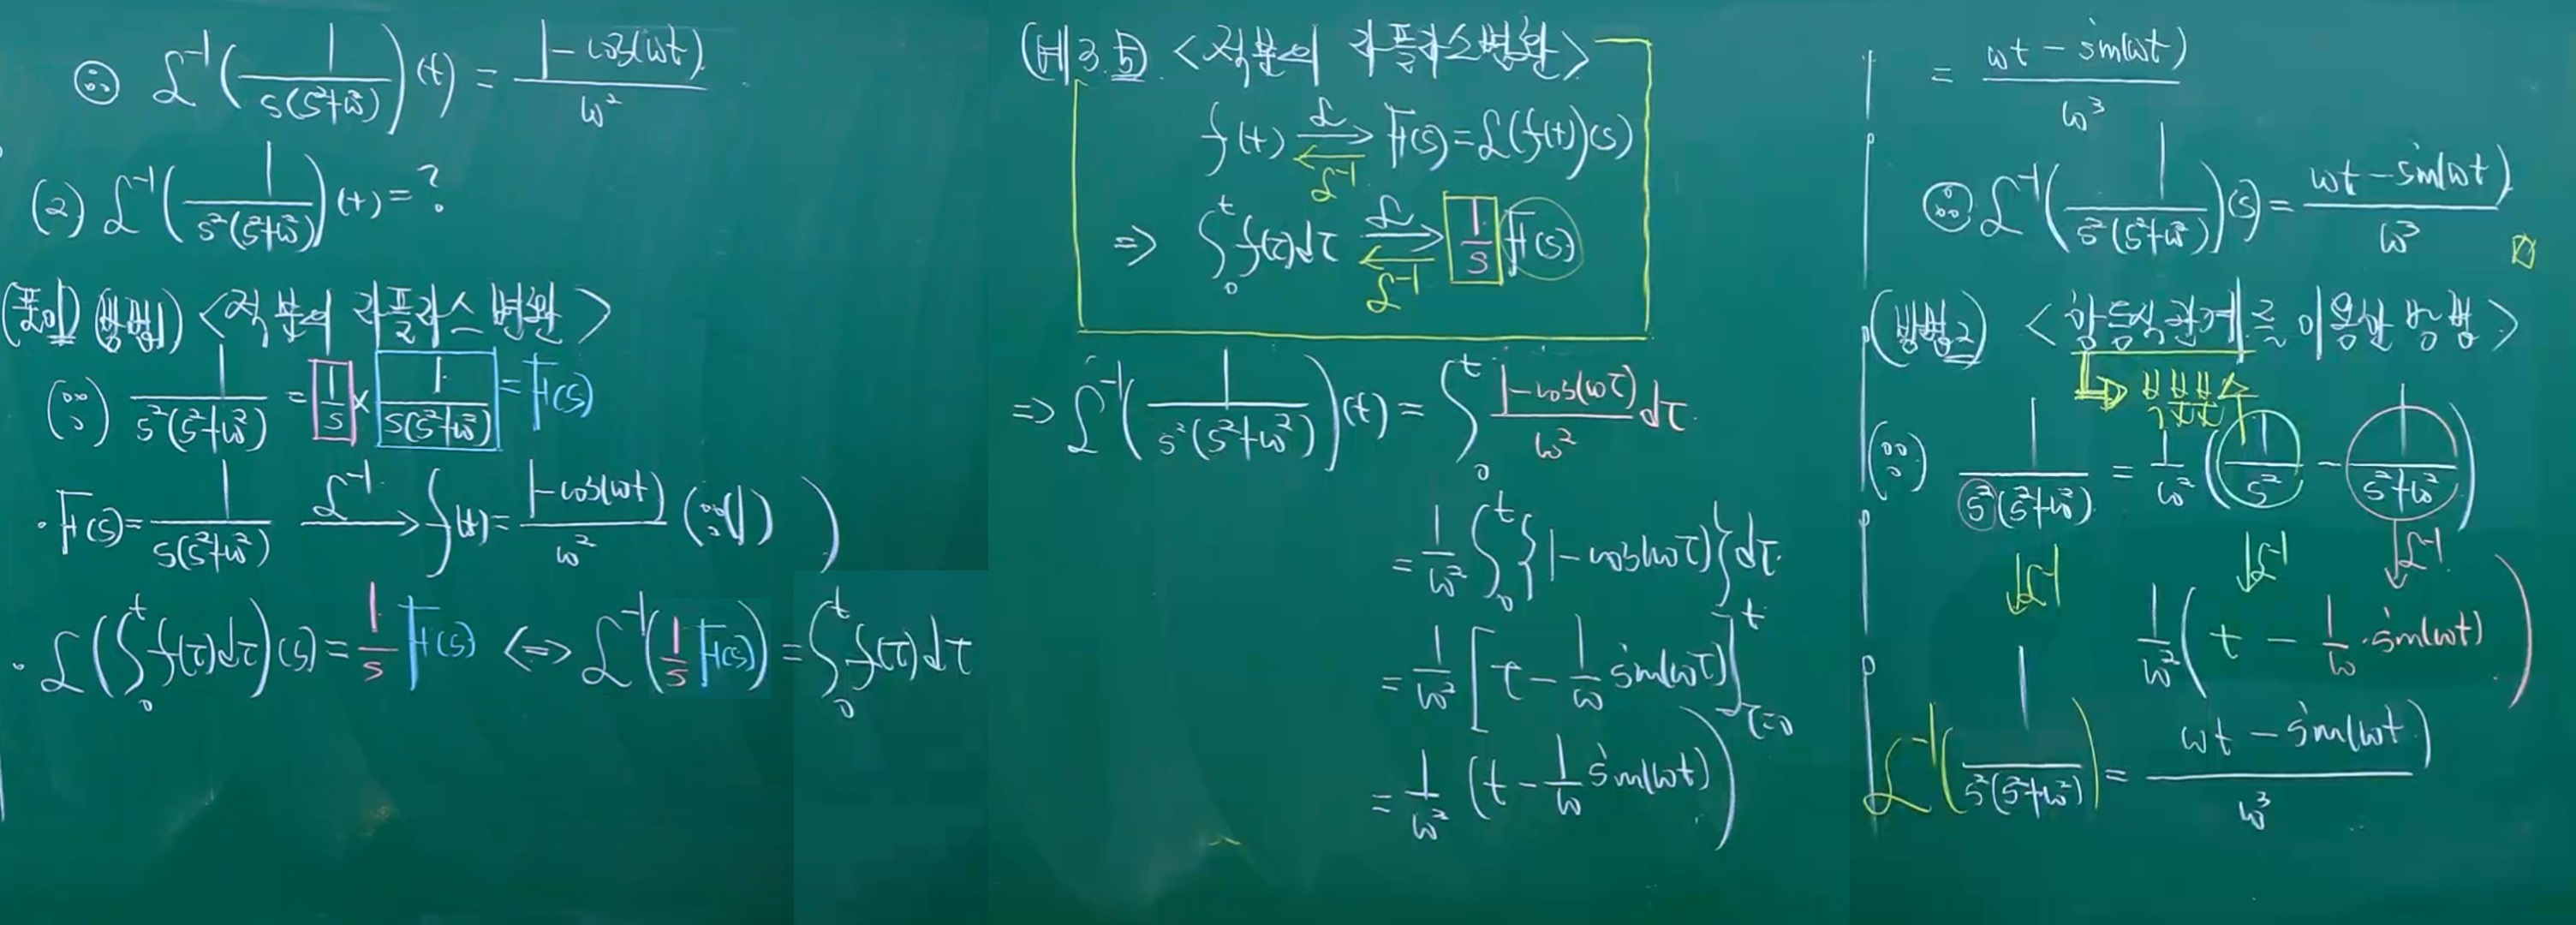 ∴ ℒ⁻¹(1/(s(s²+ω²)))(t) = (1-cos(ωt))/ω²
(2) ℒ⁻¹(1/(s²(s²+ω²)))(t) = ?
(풀이) (방법1) <적분의 라플라스 변환>
(∵) 1/(s²(s²+ω²)) = 1/s × 1/(s(s²+ω²)) = F(s)
· F(s) = 1/(s(s²+ω²)) —ℒ⁻¹→ f(t) = (1-cos(ωt))/ω² (∵(1)) )
· ℒ(∫₀ᵗ f(τ)dτ)(s) = 1/s F(s) ⇔ ℒ⁻¹(1/s F(s)) = ∫₀ᵗ f(τ)dτ
<적분의 라플라스 변환>
f(t) ⇄ F(s) = ℒ(f(t))(s)
ℒ ℒ⁻¹
⇒ ∫₀ᵗ f(τ)dτ ⇄ 1/s F(s)
ℒ ℒ⁻¹
⇒ ℒ⁻¹(1/(s²(s²+ω²)))(t) = ∫₀ᵗ (1-cos(ωτ))/ω² dτ
= 1/ω² ∫₀ᵗ {1-cos(ωτ)}dτ
= 1/ω² [τ - 1/ω sin(ωτ)]ᵗ τ=0
= 1/ω² (t - 1/ω sin(ωt))
= (ωt - sin(ωt))/ω³
∴ ℒ⁻¹(1/(s²(s²+ω²)))(s) = (ωt - sin(ωt))/ω³
(방법2) <항등식 관계를 이용한 방법>
(∵) 1/(s²(s²+ω²)) = 1/ω² (1/s² - 1/(s²+ω²))
↓ℒ⁻¹ ↓ℒ⁻¹ ↓ℒ⁻¹
1/ω² (t - 1/ω · sin(ωt))
ℒ⁻¹(1/(s²(s²+ω²))) = (ωt - sin(ωt))/ω³